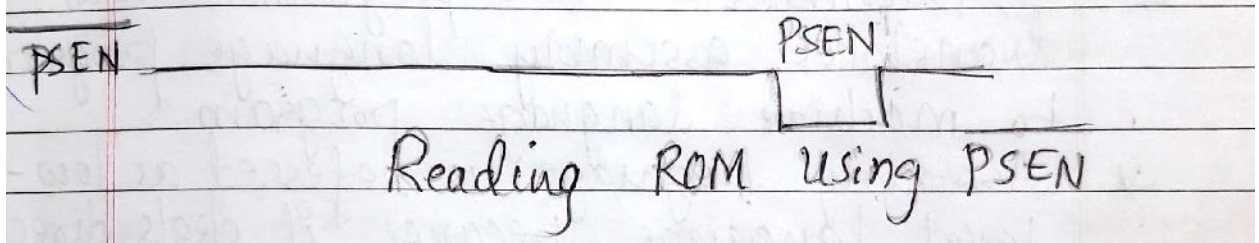 PSEN
PSEN
Reading ROM using PSEN